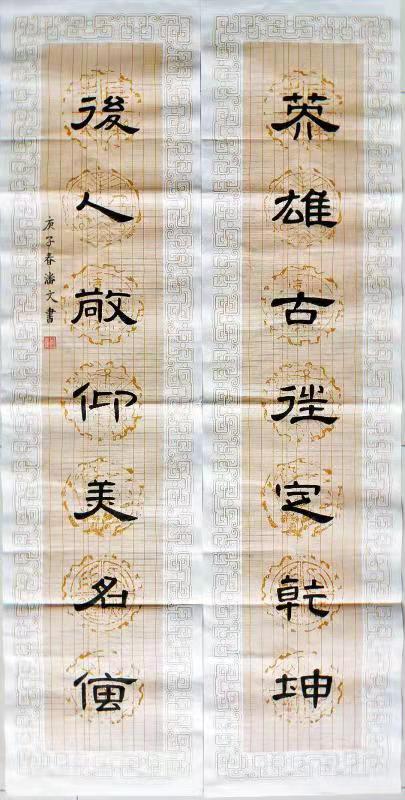 英雄古往定乾坤
後人敬仰美名傳
庚子春潘文書